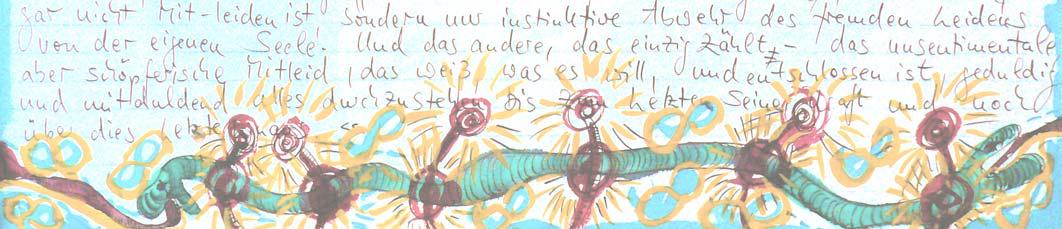 gar nicht Mit-leiden ist sondern nur instinktive Abwehr des fremden Leidens
von der eigenen Seele. Und das andere, das einzig zählt, – das unsentimentale
aber schöpferische Mitleid, das weiß, was es will, und entschlossen ist, geduldig
und mitduldend alles durchzustehen bis zum Letzten Seiner Kraft und noch
über dies Letzte hinaus «